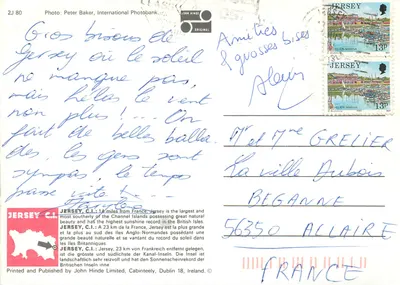 2J 80 Photo: Peter Baker, International Photobank.
JOHN HINDE
ORIGINAL
Gros bisous de
Jersey où le soleil
ne manque pas,
mais hélas le vent
non plus!... On
fait de belles balla-
des. les gens sont
sympas. le temps
passe vite
Amitiés
& grosses bises
Alain
JERSEY
13p
JERSEY
13p
Mr et Mme GRELIER
La ville Aubois
BEGANNE
56350 ALLAIRE
FRANCE
JERSEY C.I.
JERSEY, C.I.: 14 miles from France, Jersey is the largest and
most southerly of the Channel Islands possessing great natural
beauty and has the highest sunshine record in the British Isles.
JERSEY, C.I.: A 23 km de la France, Jersey est la plus grande
et la plus au sud des îles Anglo-Normandes possédant une
grande beauté naturelle et se vantant du record du soleil dans
les îles Britanniques
JERSEY, C.I.: Jersey, 23 km von Frankreich entfernt gelegen,
ist die grösste und südlichste der Kanal-Inseln. Die Insel ist
landschaftlich sehr reizvoll und hat den Sonnenscheinrekord der
Britischen Inseln inne
Printed and Published by John Hinde Limited, Cabinteely, Dublin 18, Ireland. ©